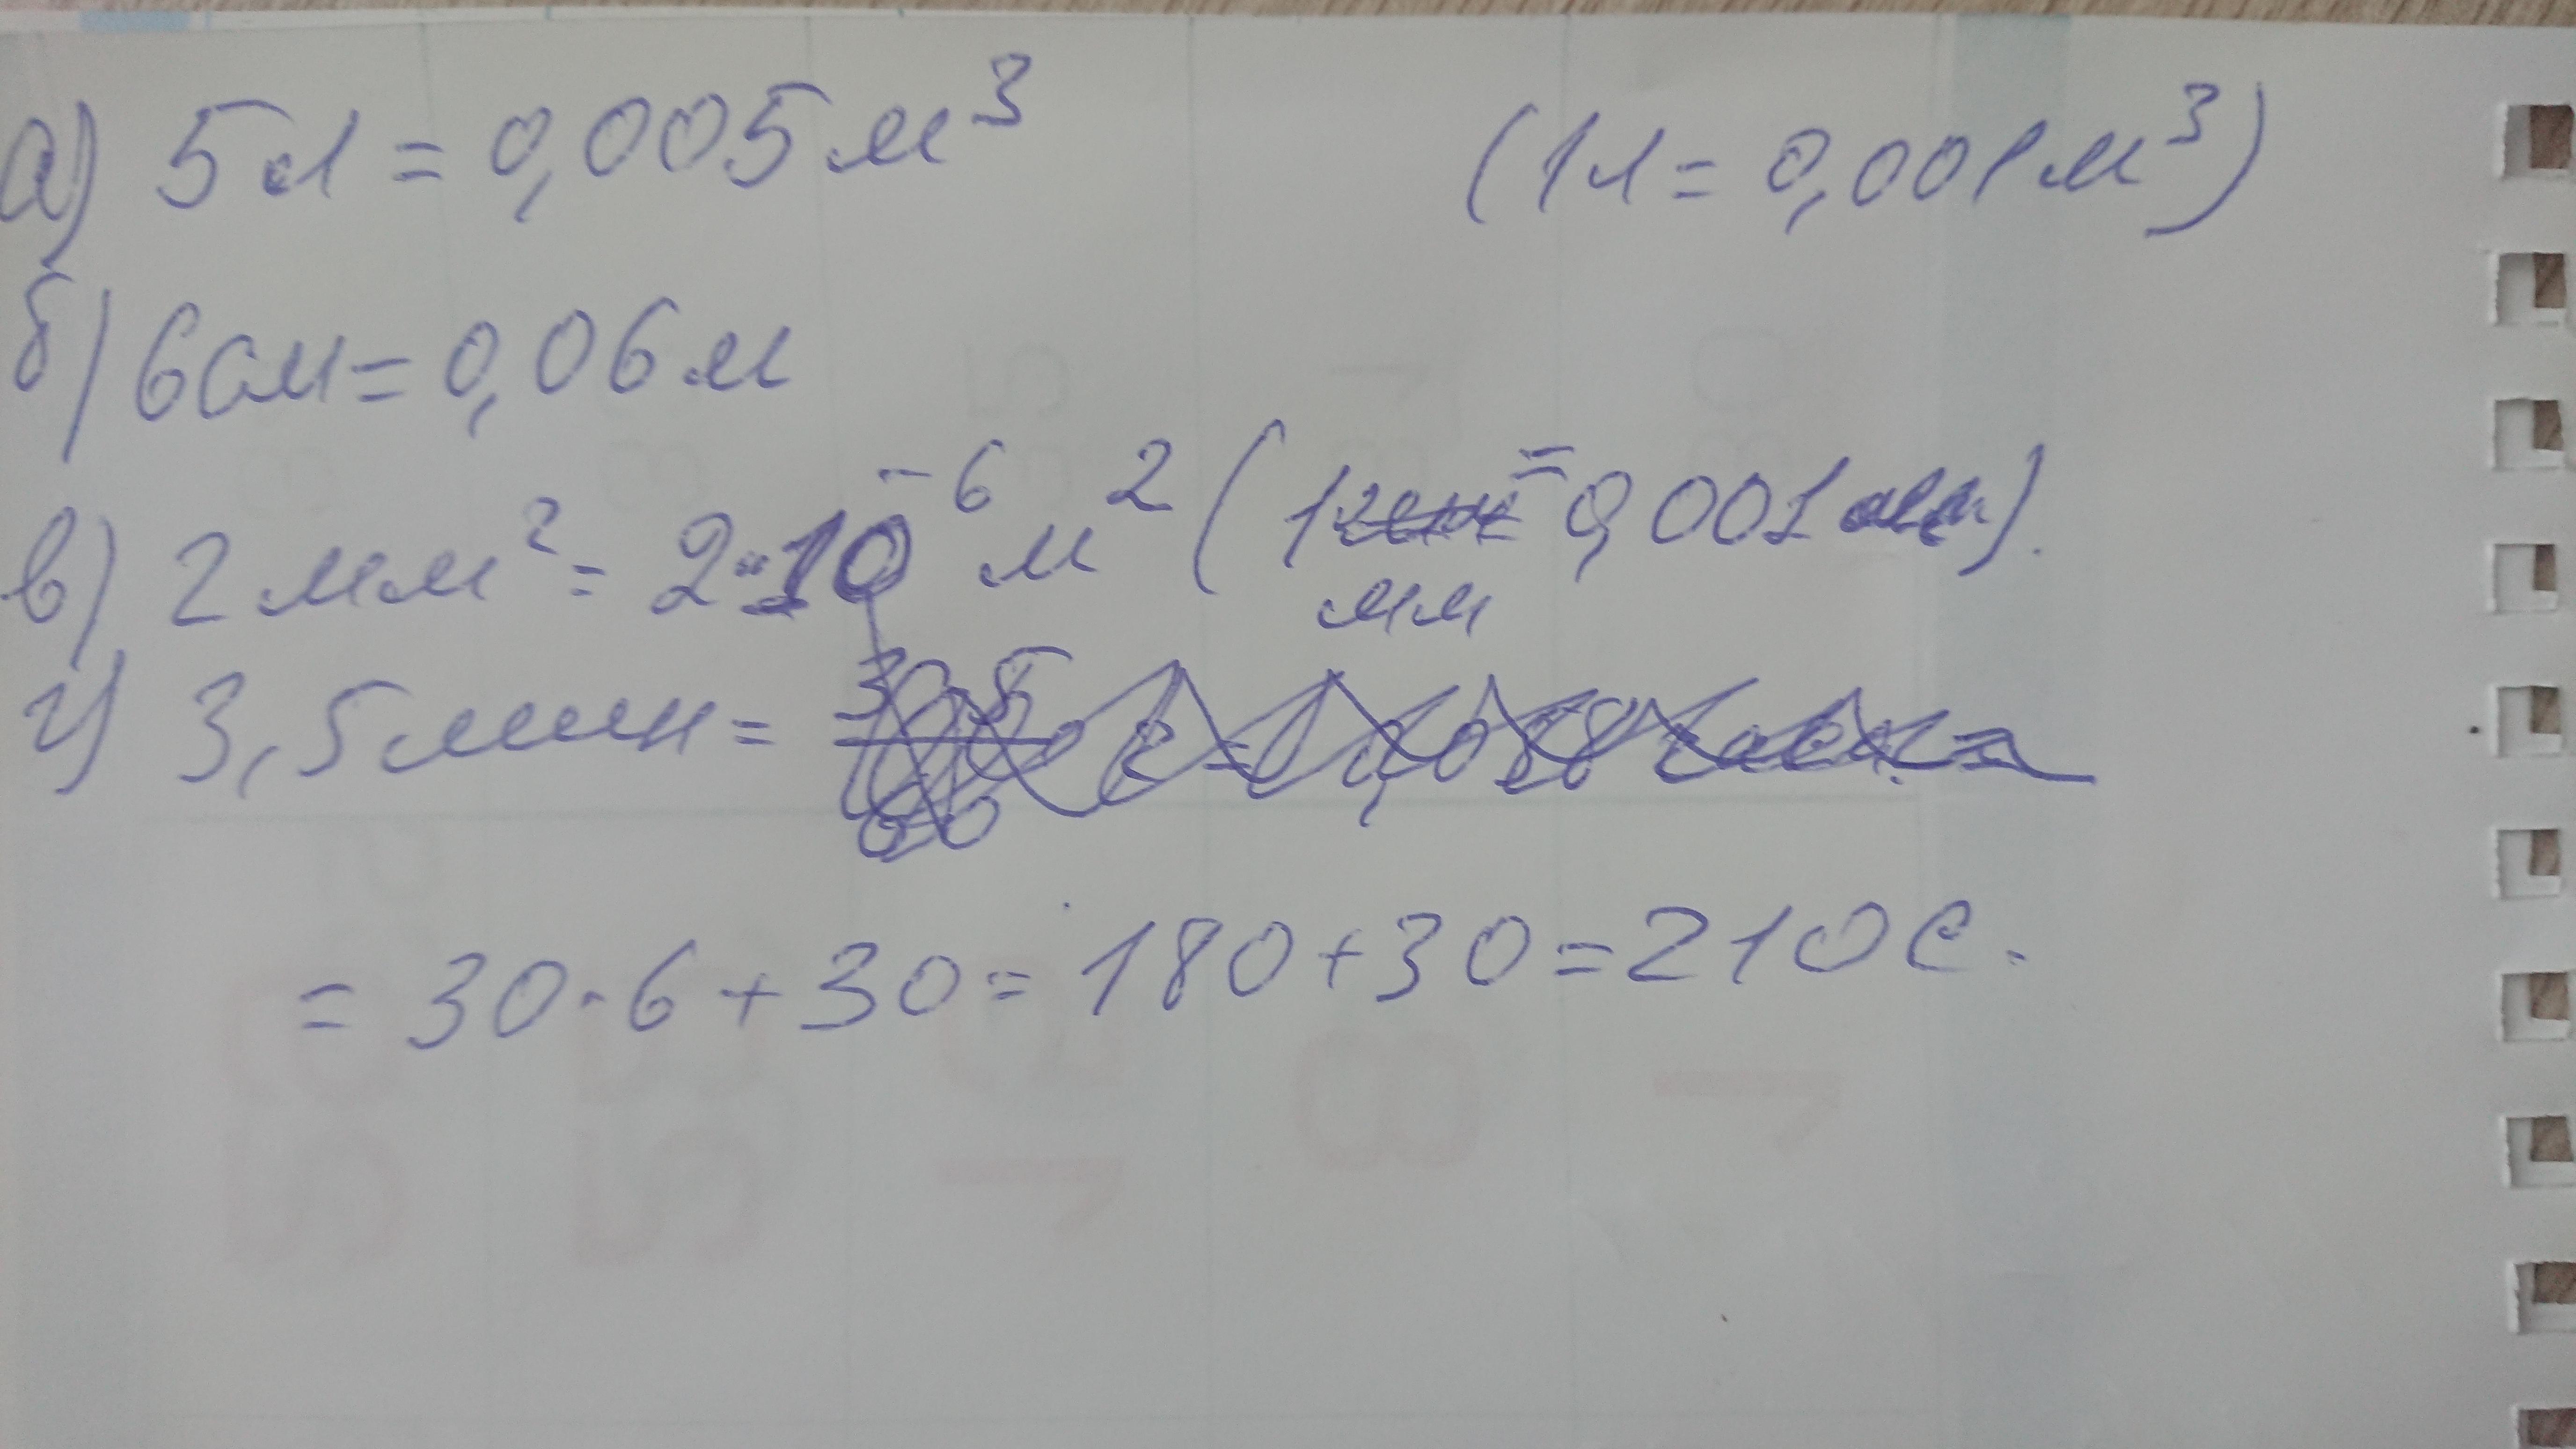 а) 5л = 0,005 м³ (1л = 0,001 м³)
б) 6см = 0,06 м
в) 2 мм² = 2·10⁻⁶ м² (1 мм = 0,001 м).
г) 3,5 мин =
= 30·6 + 30 = 180 + 30 = 210 с.